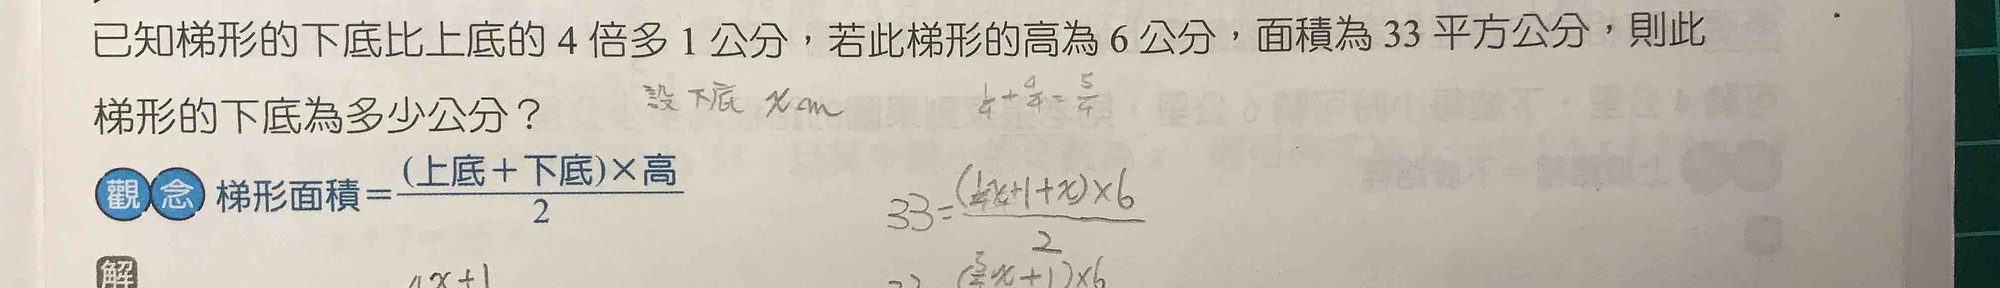 已知梯形的下底比上底的 4 倍多 1 公分，若此梯形的高為 6 公分，面積為 33 平方公分，則此
梯形的下底為多少公分？
設 下底 x cm
1/4 + 4/4 = 5/4
觀念 梯形面積＝(上底＋下底)×高/2
33 = (1/4x+1+x)×6/2
解
4x+1
33 (5/4x+1)×6